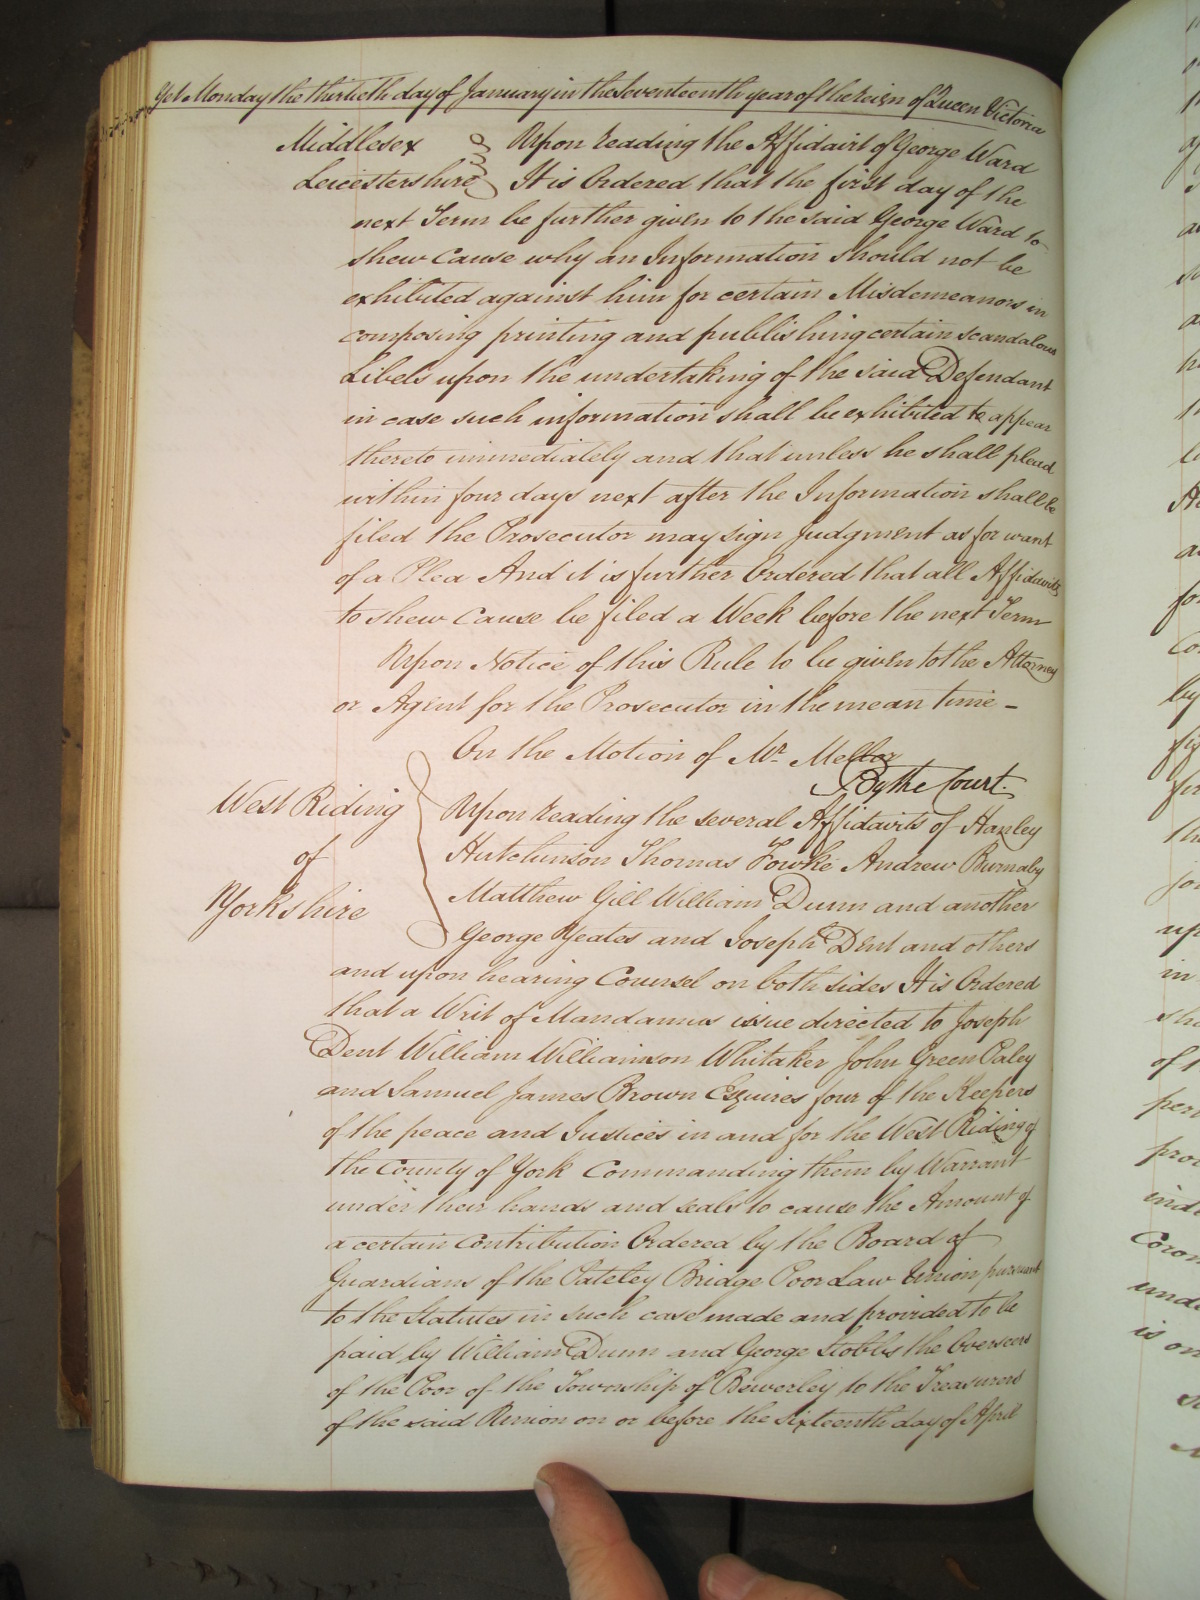 Yet Monday the thirtieth day of January in the Seventeenth year of the Reign of Queen Victoria
Middlesex Upon reading the Affidavit of George Ward
Leicestershire It is Ordered that the first day of the
next Term be further given to the said George Ward to
shew Cause why an Information should not be
exhibited against him for certain Misdemeanors in
composing printing and publishing certain scandalous
Libels upon the undertaking of the said Defendant
in case such information shall be exhibited to appear
thereto immediately and that unless he shall plead
within four days next after the Information shall be
filed the Prosecutor may sign Judgment as for want
of a Plea And it is further Ordered that all Affidavits
to shew Cause be filed a Week before the next Term
Upon Notice of this Rule to be given to the Attorney
or Agent for the Prosecutor in the mean time –
On the Motion of Mr. Mellor
By the Court.
West Riding
of
Yorkshire
Upon reading the several Affidavits of Hanley
Hutchinson Thomas Fowke Andrew Burnaby
Matthew Gill William Dunn and another
George Yeates and Joseph Dent and others
and upon hearing Counsel on both sides It is Ordered
that a Writ of Mandamus issue directed to Joseph
Dent William Williamson Whitaker John Green Paley
and Samuel James Brown Esquires four of the Keepers
of the peace and Justices in and for the West Riding of
the County of York Commanding them by Warrant
under their hands and seals to cause the Amount of
a certain Contribution Ordered by the Board of
Guardians of the Pateley Bridge Poor Law Union pursuant
to the Statutes in such case made and provided to be
paid by William Dunn and George Stobbs the Overseers
of the Poor of the Township of Bewerley to the Treasurers
of the said Union on or before the Sixteenth day of April